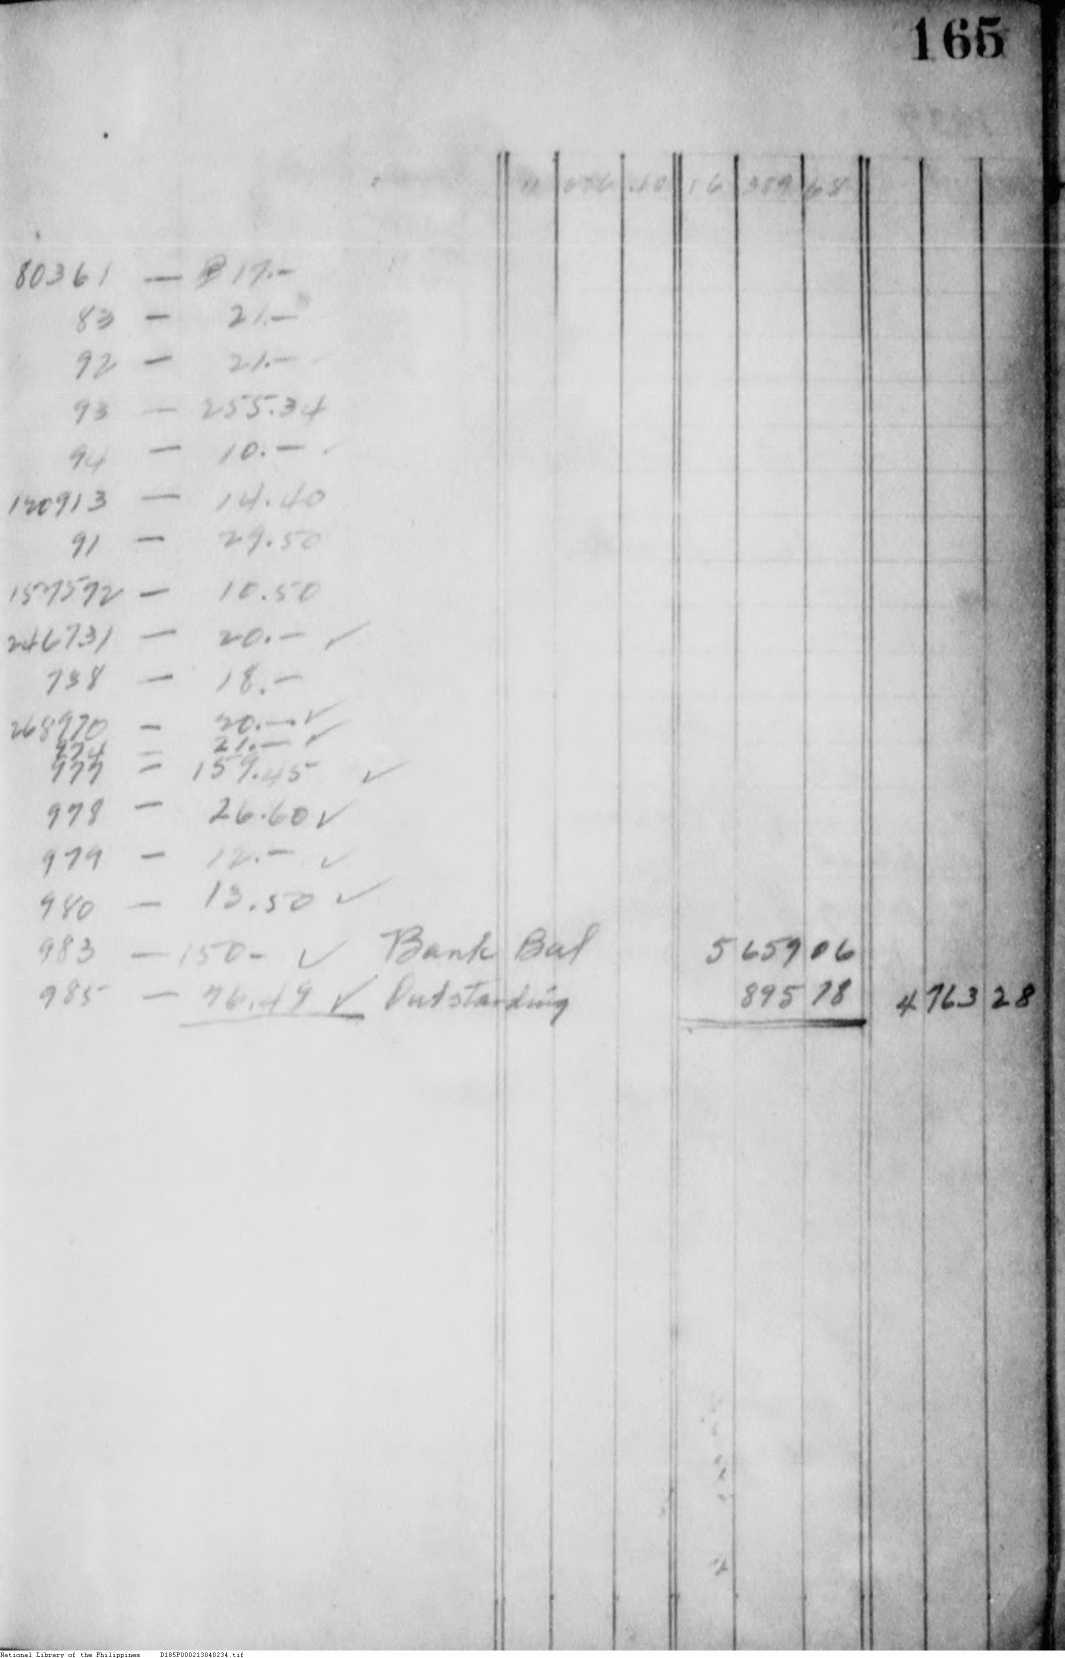 165
80361 — ₱17.—
83 — 21.—
92 — 21.—
93 — 255.34
94 — 10.—
120913 — 14.40
91 — 29.50
157572 — 10.50
246731 — 20.— ✓
738 — 18.—
268970 — 20.— ✓
974 — 21.— ✓
977 — 159.45 ✓
978 — 26.60 ✓
979 — 12.— ✓
980 — 13.50 ✓
983 — 150- ✓ Bank Bal 5 659 06
985 — 76.49 ✓ Outstanding 895 78 4 763 28
National Library of the Philippines D185P000213040234.tif